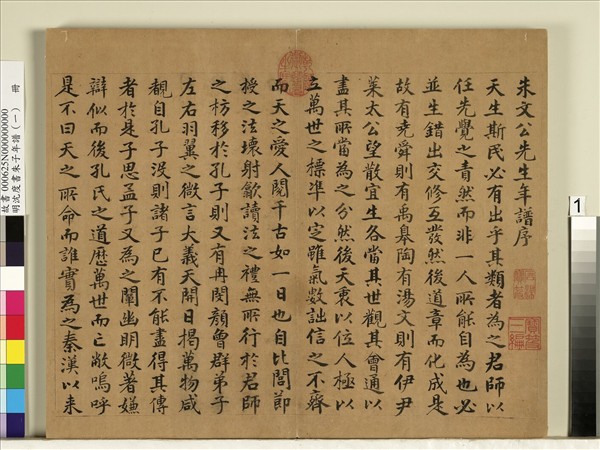 朱文公先生年譜序
天生斯民必有出乎其類者為之君師以
任先覺之責然而非一人所能自為也必
並生錯出交修互發然後道章而化成是
故有堯舜則有禹皋陶有湯文則有伊尹
萊太公望散宜生各當其世觀其會通以
盡其所當為之分然後天衷以位人極以
立萬世之標準以定雖氣數詘信之不齊
而天之愛人閱千古如一日也自比閭節
授之法壞射飲讀法之禮無所行於君師
之枋移於孔子則又有冉閔顏曾群弟子
左右羽翼之微言大義天開日揭萬物咸
覩自孔子沒則諸子已有不能盡得其傳
者於是子思孟子又為之闡幽明微著嫌
辯似而後孔氏之道歷萬世而亡敝嗚呼
是不曰天之所命而誰實為之秦漢以来
寶笈三編
故書 000625N000000000 冊
明沈度書朱子年譜(一)
1